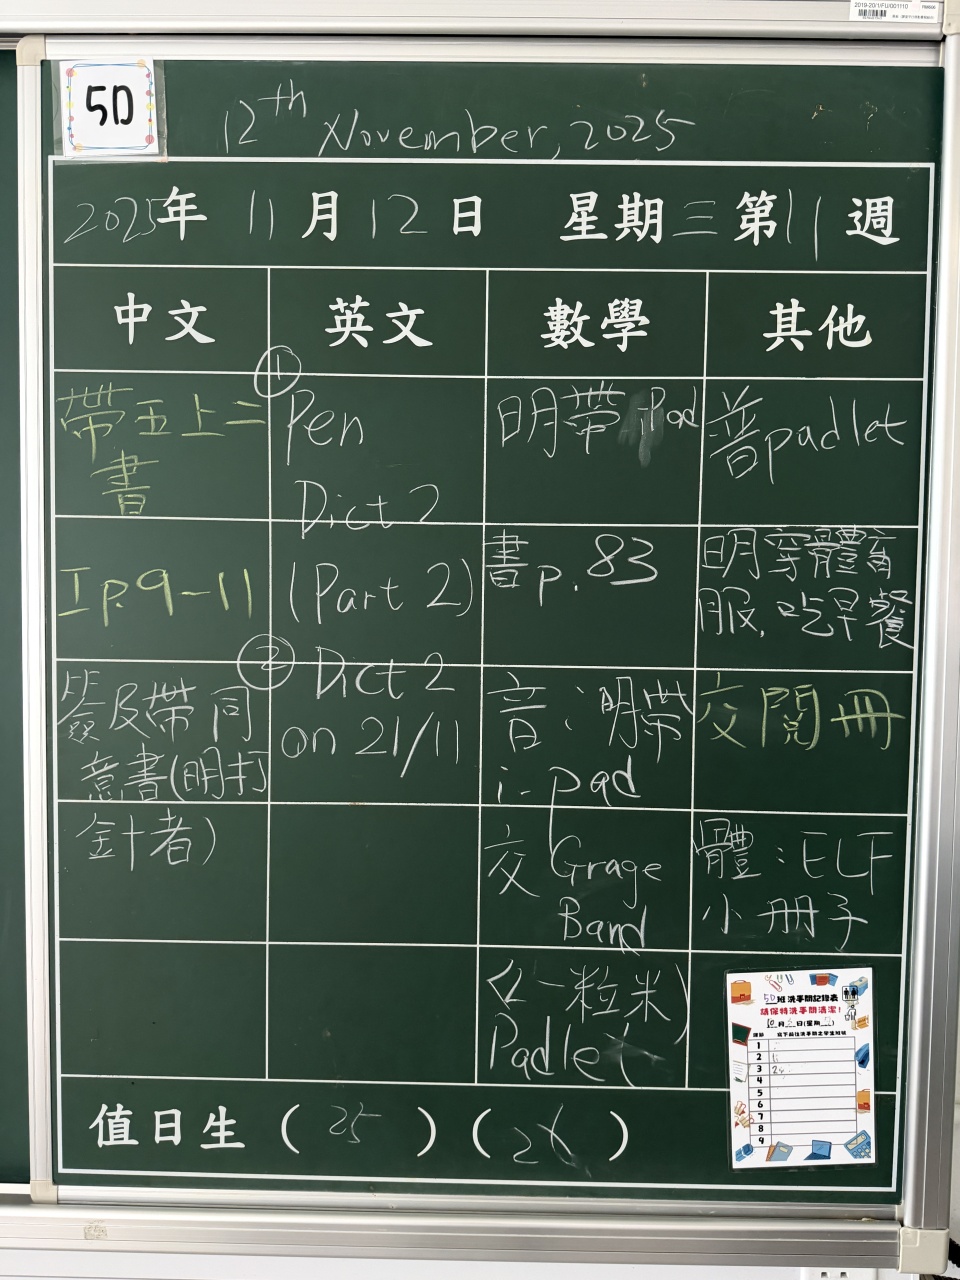 2019-20/1/FU/001110
5D
12th November, 2025
2025年 11月12日 星期三第11週
中文
英文
數學
其他
帶五上二
書
工p.9-11
簽及帶同
意書(明打
針者)
①
Pen
Dict 2
(Part 2)
② Dict 2
on 21/11
明帶iPad
書p.83
音:明帶
i-pad
交Grage
Band
《一粒米》
Padlet
普padlet
明穿體育
服,吃早餐
交閱冊
體:ELF
小冊子
5D班洗手間記錄表
請保持洗手間清潔!
月 日(星期 )
1
2 11
3 24
4
5
6
7
8
9
值日生 ( 25 ) ( 26 )